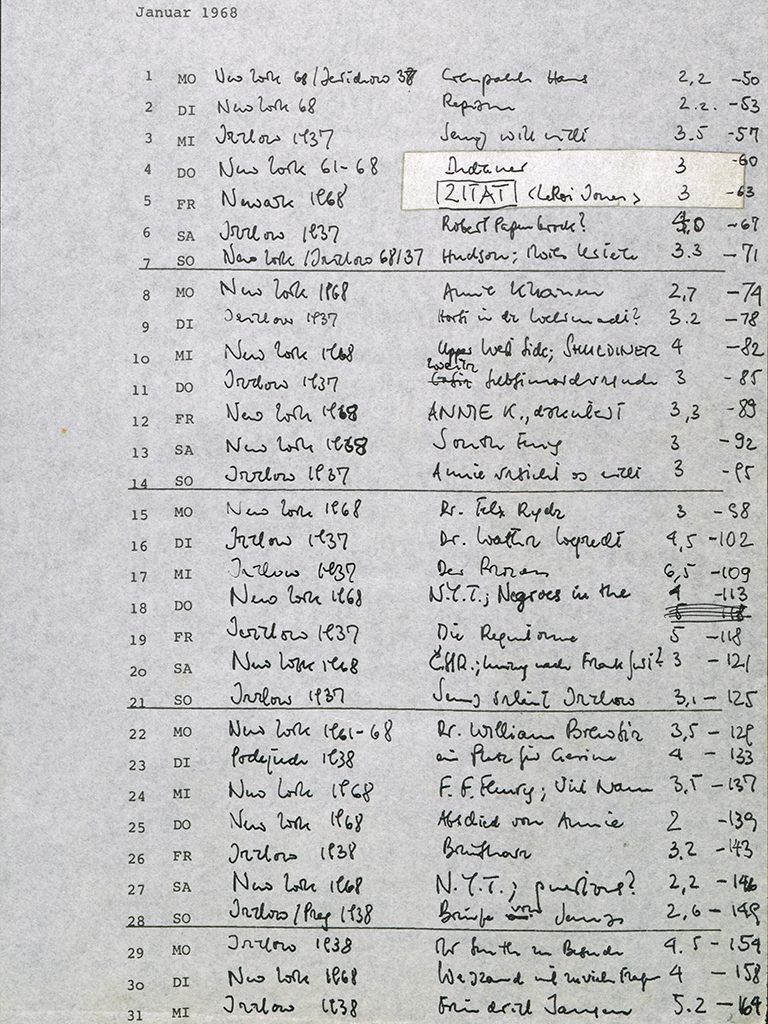 Januar 1968
1 MO New York 68/Jerichow 37 Hans 2,2 -50
2 DI New York 68 2.2. -53
3 MI Jerichow 1937 will nicht 3.5 -57
4 DO New York 61-68 Indianer 3 -60
5 FR Newark 1968 ZITAT (LeRoi Jones) 3 -63
6 SA Jerichow 1937 Robert Papenbrock? -67
7 SO New York/Jerichow 68/37 Hudson; 3.3 -71
8 MO New York 1968 Annie Khanen 2,7 -74
9 DI Jerichow 1937 Horst in der Wehrmacht? 3.2 -78
10 MI New York 1968 Upper West Side; SHULDINER 4 -82
11 DO Jerichow 1937 zweiter Selbstmordversuch 3 -85
12 FR New York 1968 ANNIE K., 3,3 -89
13 SA New York 1968 South Ferry 3 -92
14 SO Jerichow 1937 Annie versteht es nicht 3 -95
15 MO New York 1968 Dr. Felix Rydz 3 -98
16 DI Jerichow 1937 Dr. Walther Wegerecht 4,5 -102
17 MI Jerichow 1937 Der Prozess 6,5 -109
18 DO New York 1968 N.Y.T.; Negroes in the 4 -113
19 FR Jerichow 1937 Die 5 -118
20 SA New York 1968 ČSSR.; nach Frankfurt? 3 -121
21 SO Jerichow 1937 Jerichow 3,1 -125
22 MO New York 1961-68 Dr. William Brewster 3,5 -129
23 DI Podejuch 1938 ein Platz für Gesine 4 -133
24 MI New York 1968 F. F. Fleury; Viet Nam 3,5 -137
25 DO New York 1968 Abschied von Annie 2 -139
26 FR Jerichow 1938 3.2 -143
27 SA New York 1968 N.Y.T.; questions? 2,2 -146
28 SO Jerichow/Prag 1938 Briefe von 2,6 -149
29 MO Jerichow 1938 Mr Smith zu Besuch 4.5 -154
30 DI New York 1968 mit zu vielen Fragen 4 -158
31 MI Jerichow 1938 Friedrich Jansen 5.2 -164